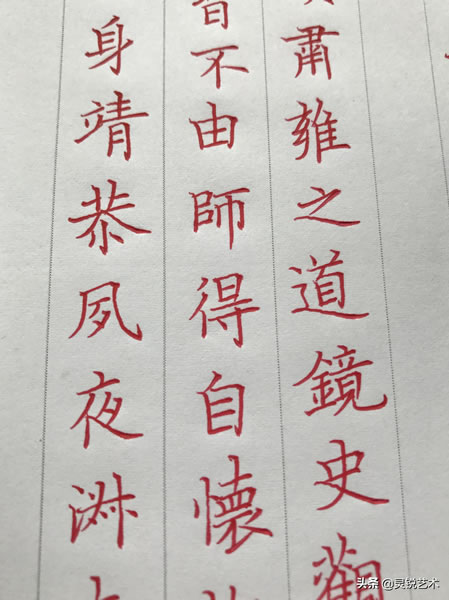 肅雍之道鏡史觀
不由師得自懷
身靖恭夙夜淑
头条 @灵锐艺术